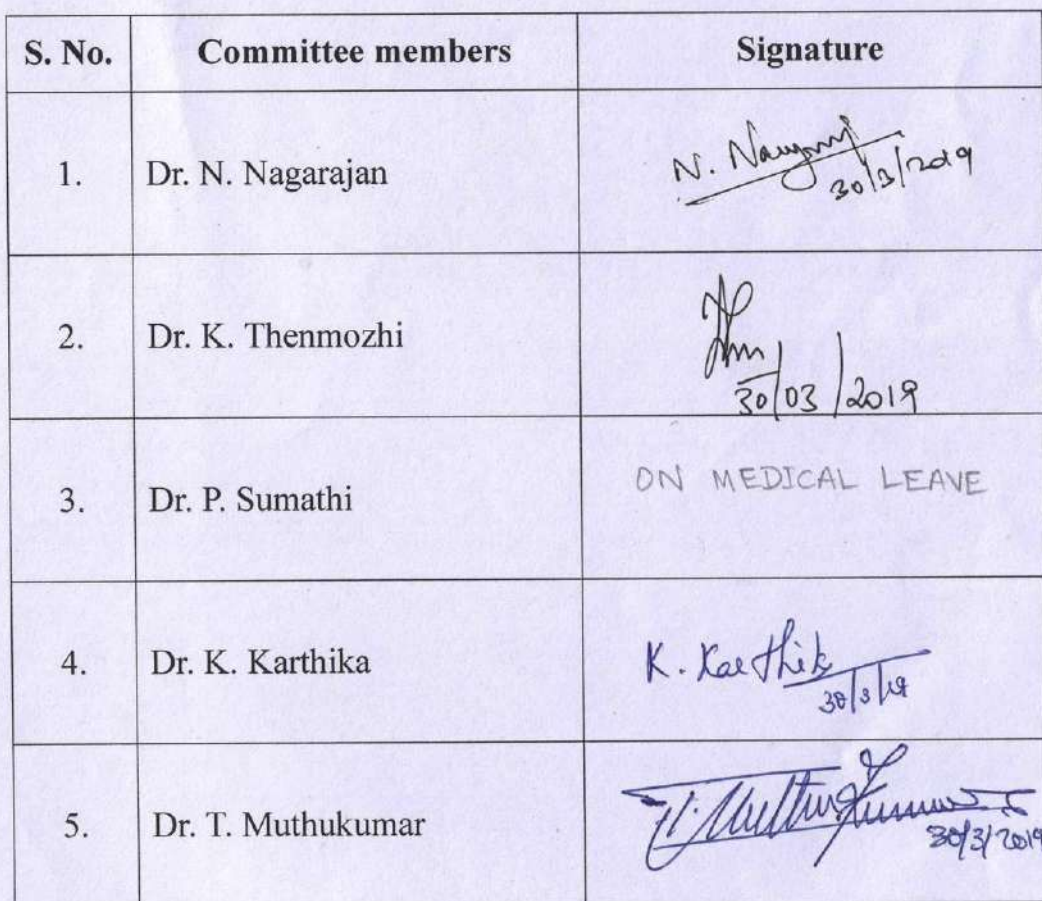 S. No. Committee members Signature
1. Dr. N. Nagarajan N.
30/3/2019
2. Dr. K. Thenmozhi
30/03/2019
3. Dr. P. Sumathi ON MEDICAL LEAVE
4. Dr. K. Karthika K. Karthik
30/3/19
5. Dr. T. Muthukumar T. Muthukumar
30/3/2019